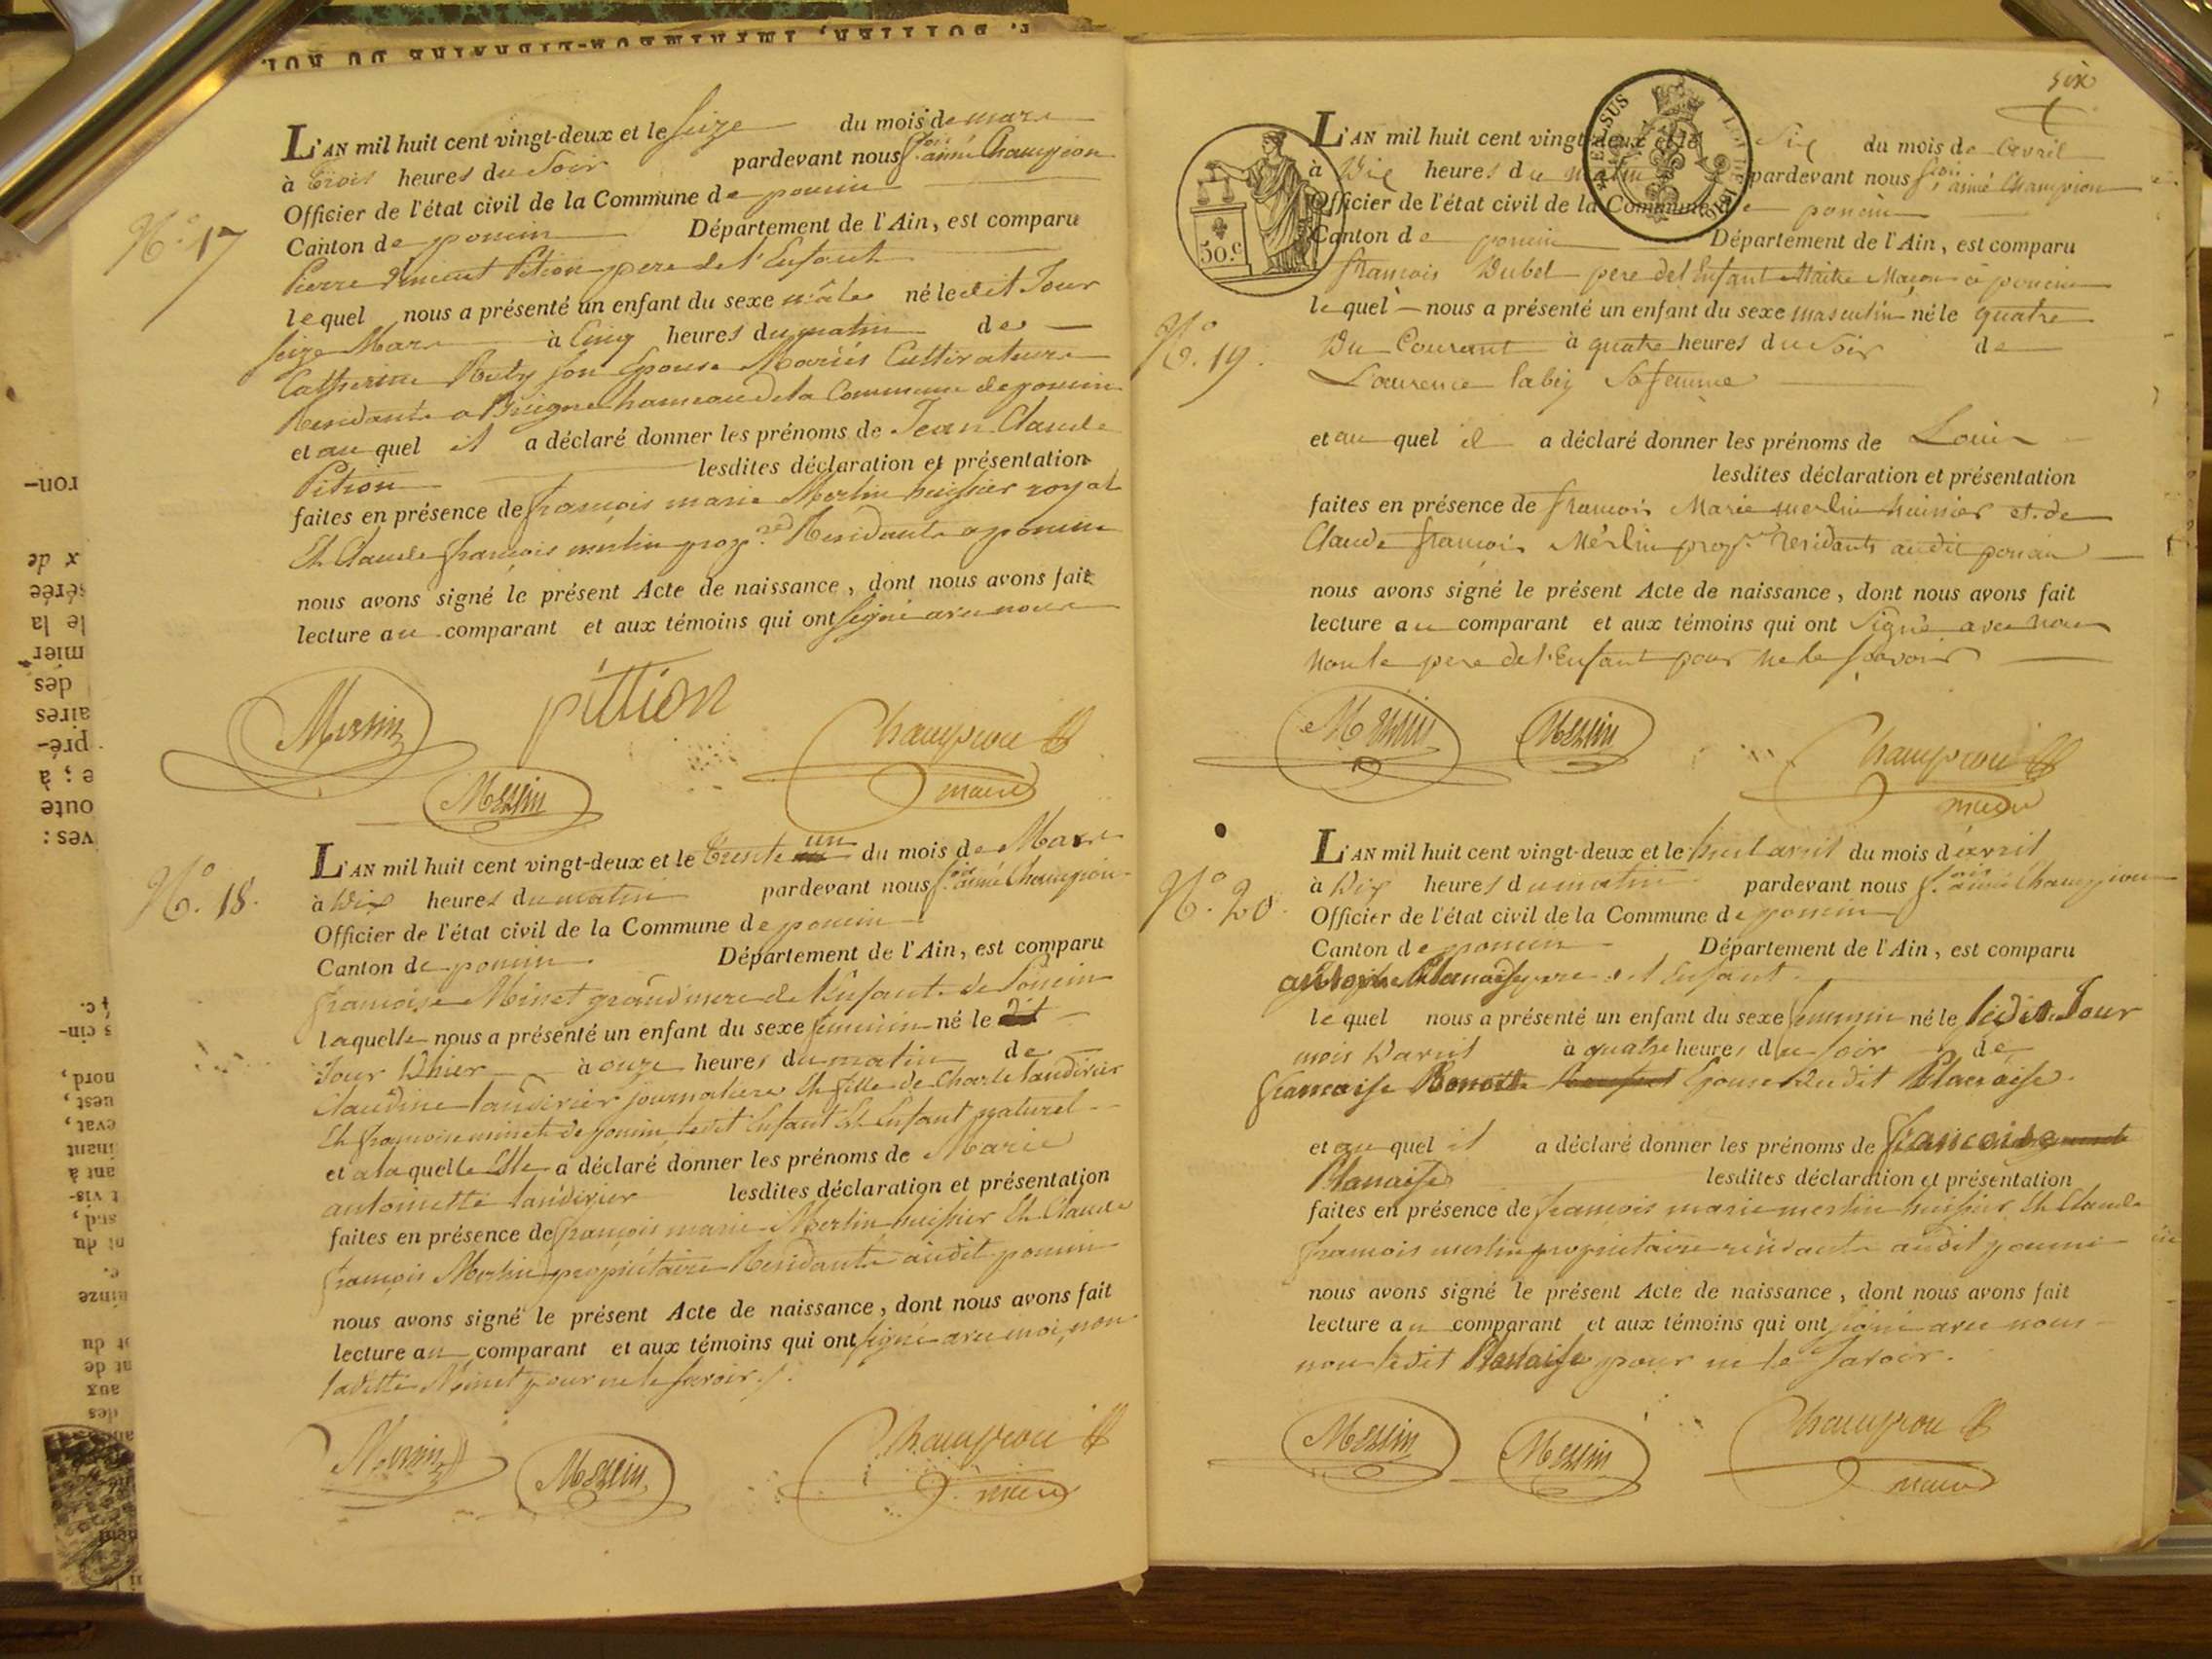 N.o 17
L'AN mil huit cent vingt-deux et le seize du mois de mars
à trois heures du soir pardevant nous f.ois aimé Champion
Officier de l'état civil de la Commune de poncin
Canton de poncin Département de l'Ain, est comparu
Pierre Vincent Pition pere de l'Enfant
lequel nous a présenté un enfant du sexe mâle né ledit Jour
seize Mars à Cinq heures du matin de
Catherine son Epouse Mariés Cultivateurs
Residants a hameau de la Commune de poncin
et au quel il a déclaré donner les prénoms de Jean Claude
Pition lesdites déclaration et présentation
faites en présence de françois marie Merlin huissier royal
Et Claude françois merlin prop.re Residants a poncin
nous avons signé le présent Acte de naissance, dont nous avons fait
lecture au comparant et aux témoins qui ont signé avec nous
Merlin pittion Champion
Merlin maire
N.o 18.
L'AN mil huit cent vingt-deux et le trente un du mois de Mars
à Dix heures du matin pardevant nous f.ois aimé Champion
Officier de l'état civil de la Commune de poncin
Canton de poncin Département de l'Ain, est comparu
françoise Minet grand mere de l'enfant de Poncin
laquelle nous a présenté un enfant du sexe feminin né le
Jour D'hier à onze heures du matin de
Claudine journaliere Et fille de Charle
Et françoise minet de poncin ledit Enfant Est Enfant naturel
et a laquelle Elle a déclaré donner les prénoms de Marie
antoinette lesdites déclaration et présentation
faites en présence de françois marie Merlin huissier Et Claude
françois Merlin propriétaire Residants audit poncin
nous avons signé le présent Acte de naissance, dont nous avons fait
lecture au comparant et aux témoins qui ont signé avec moi, non
ladite Minet pour ne le savoir.
Merlin Merlin Champion
maire
six
50.c
L'AN mil huit cent vingt-deux et le Six du mois de Avril
à Dix heures du matin pardevant nous f.ois aimé Champion
Officier de l'état civil de la Commune de poncin
Canton de poncin Département de l'Ain, est comparu
françois Dubet pere del Enfant Maitre Maçon à poncin
lequel nous a présenté un enfant du sexe masculin né le quatre
N.o 19.
Du Courant à quatre heures du Soir de
Laurence Sa femme
et au quel il a déclaré donner les prénoms de Louis
lesdites déclaration et présentation
faites en présence de françois Marie merlin huissier et de
Claude françois Merlin prop.re residants audit poncin
nous avons signé le présent Acte de naissance, dont nous avons fait
lecture au comparant et aux témoins qui ont Signé avec nous
non le pere de l'Enfant pour ne le savoir
Merlin Merlin Champion
maire
N.o 20
L'AN mil huit cent vingt-deux et le huit avril du mois d'avril
à Dix heures du matin pardevant nous f.ois aimé Champion
Officier de l'état civil de la Commune de poncin
Canton de poncin Département de l'Ain, est comparu
pere de l'Enfant
lequel nous a présenté un enfant du sexe feminin né le ledit Jour
mois Davril à quatre heures du soir de
francoise Epouse Dudit
et au quel il a déclaré donner les prénoms de francoise
lesdites déclaration et présentation
faites en présence de françois marie merlin huissier Et Claude
francois merlin propriétaire residants audit poncin
nous avons signé le présent Acte de naissance, dont nous avons fait
lecture au comparant et aux témoins qui ont signé avec nous
non ledit pour ne le savoir.
Merlin Merlin Champion
maire